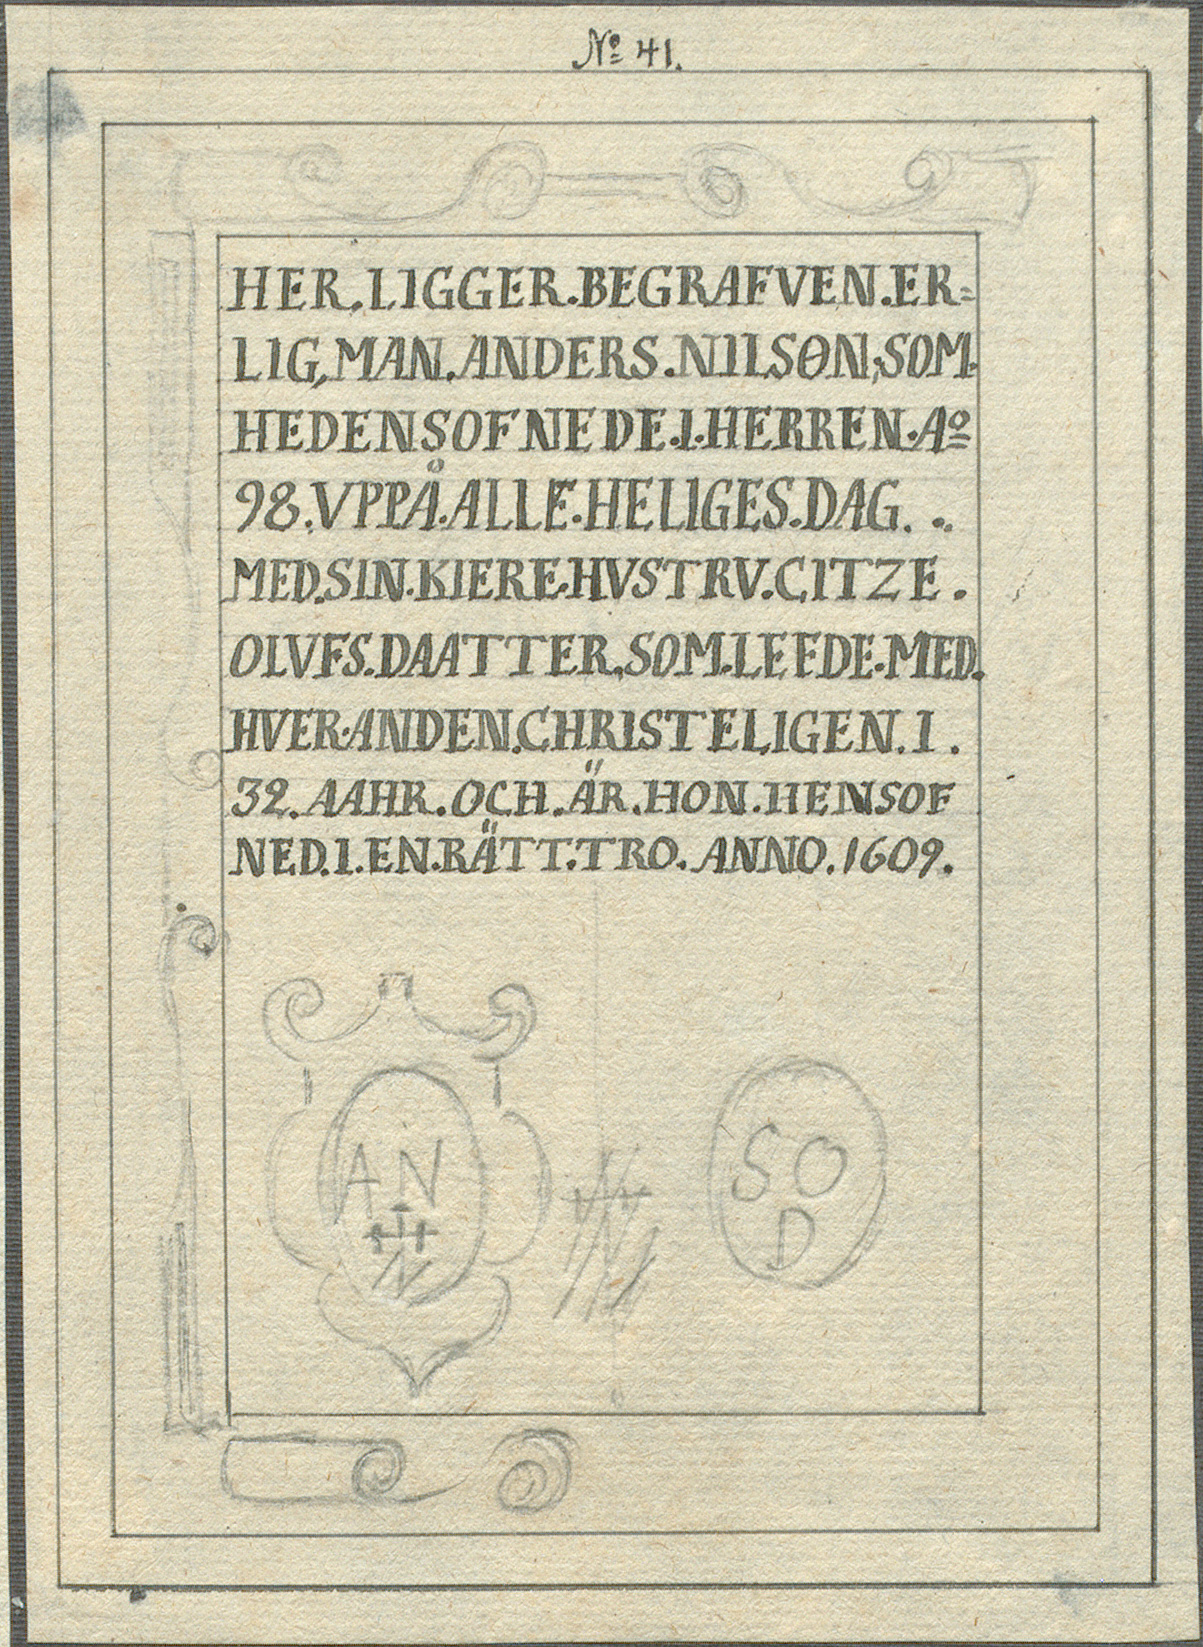 Nº 41.
HER.LIGGER.BEGRAFVEN.ER=
LIG,MAN.ANDERS.NILSØN;SOM.
HEDENSOFNEDE.I.HERREN.Aº
98.VPPÅ.ALLE.HELIGES.DAG. ..
MED.SIN.KIERE.HVSTRV.CITZE.
OLVFS.DAATTER,SOM.LEFDE.MED.
HVER.ANDEN.CHRISTELIGEN.I.
32.AAHR.OCH.ÄR.HON.HENSOF
NED.I.EN.RÄTT.TRO.ANNO.1609.
AN
N
SO
D